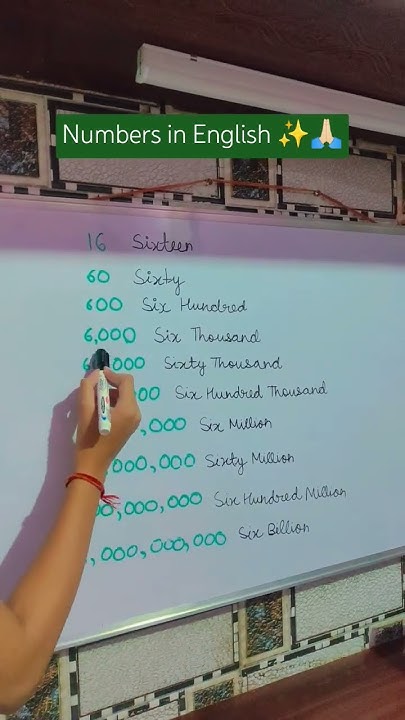 Numbers in English ✨🙏🏻
16 Sixteen
60 Sixty
600 Six Hundred
6,000 Six Thousand
000 Sixty Thousand
00 Six Hundred Thousand
,000 Six Million
000,000 Sixty Million
00,000,000 Six Hundred Million
,000,000,000 Six Billion